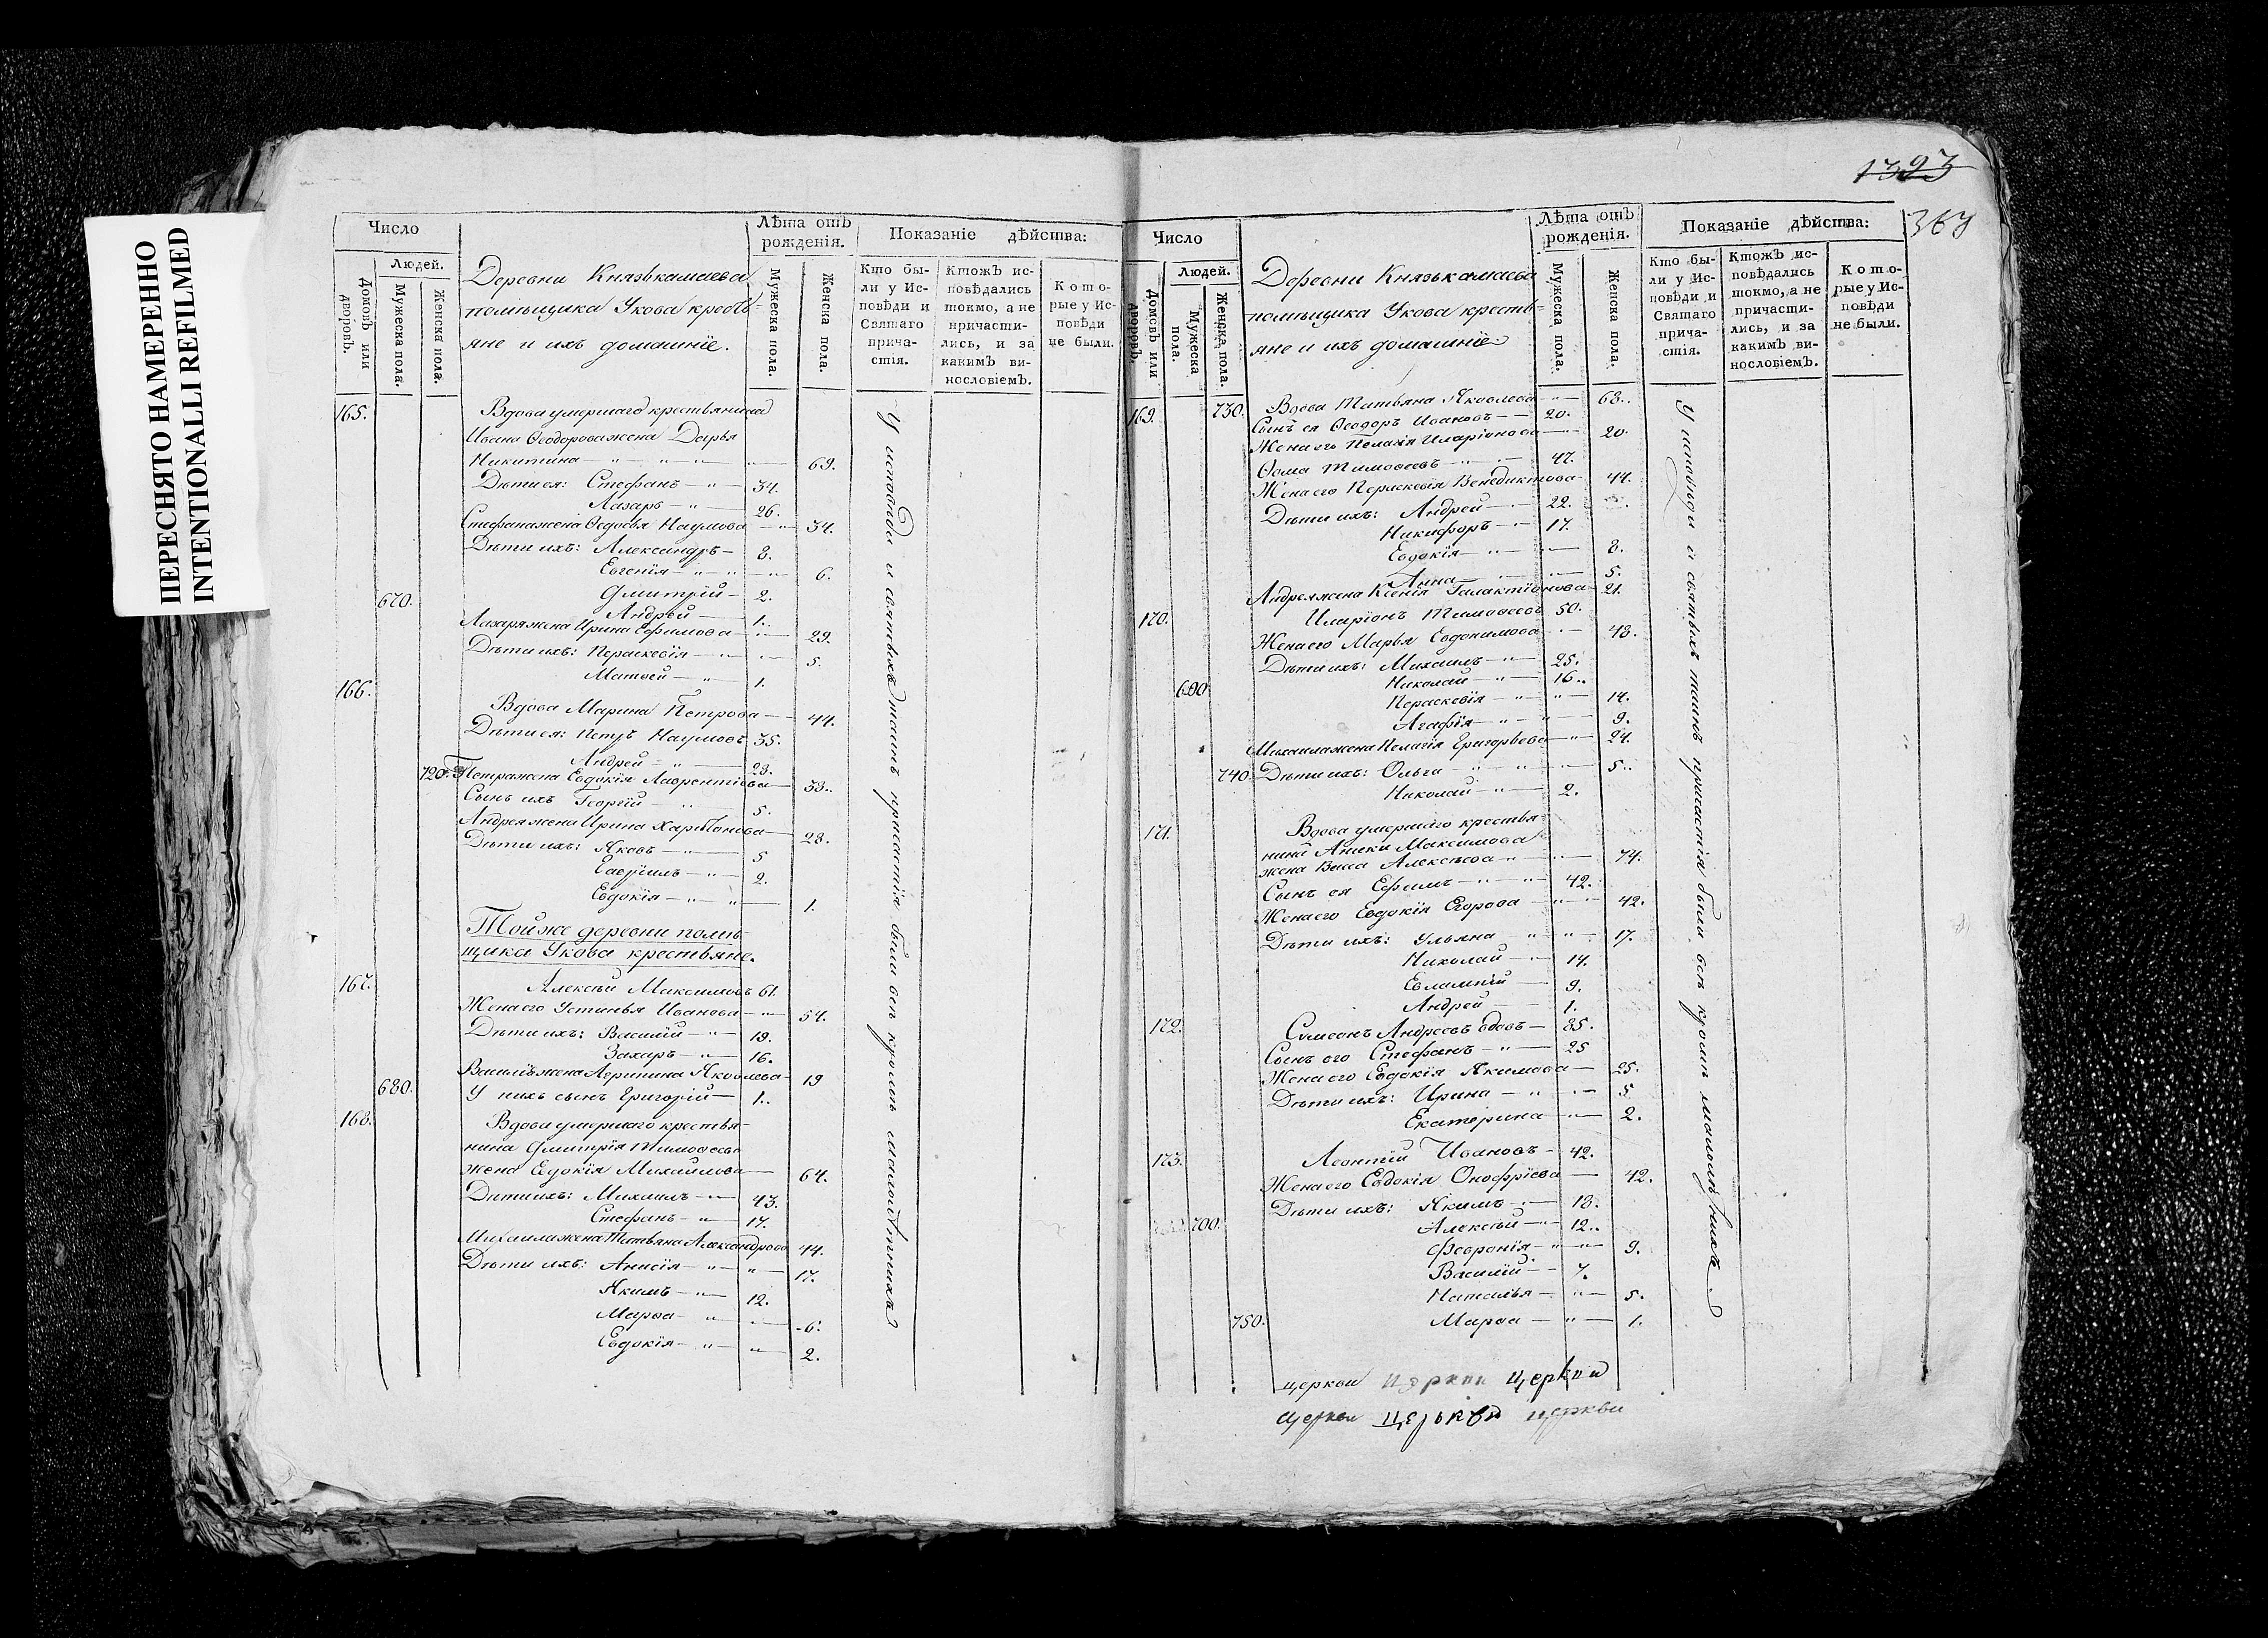 ПЕРЕСНЯТО НАМЕРЕННО
INTENTIONALLI REFILMED
Число
Людей.
Домовъ или дворовъ.
Мужеска пола.
Женска пола.
Деревни Князькамаева
помѣщика Укова кресть-
яне и ихъ домашніе.
Лѣта отъ рожденія.
Мужеска пола.
Женска пола.
Показаніе дѣйства:
Кто бы-
ли у Ис-
повѣди и
Святаго
прича-
стія.
Ктожъ ис-
повѣдались
токмо, а не
причасти-
лись, и за
какимъ ви-
нословіемъ.
Кото-
рые у Ис-
повѣди
не были.
165. Вдова умершаго крестьянина
Ивана Ѳеодорова жена Дарья
Никитина — 69.
Дѣти ея: Стефанъ — 34.
Лазарь — 26.
Стефана жена Ѳедосья Наумова — 34.
Дѣти ихъ: Александръ — 8.
Евгенія — 6.
670. Дмитрій — 2.
Андрей — 1.
Лазаря жена Ирина Ефимова — 29.
Дѣти ихъ: Параскевія — 5.
Матѳей — 1.
166.
Вдова Марина Петрова — 44.
Дѣти ея: Петръ Наумовъ 35.
Андрей — 23.
720. Петра жена Евдокія Лаврентіева — 33.
Сынъ ихъ Георгій — 5.
Андрея жена Ирина Харитонова — 28.
Дѣти ихъ: Яковъ — 5
Гавріилъ — 2.
Евдокія — 1.
Тойже деревни помѣ-
щика Укова крестьяне.
167. Алексѣй Максимовъ 61.
Жена его Устинья Иванова — 54.
Дѣти ихъ: Василій — 19.
Захаръ — 16.
Василія жена Агрипина Яковлева — 19
680. У нихъ сынъ Григорій — 1.
168. Вдова умершаго крестья-
нина Дмитрія Тимоѳеева
жена Евдокія Михайлова — 64.
Дѣти ихъ: Михаилъ — 43.
Стефанъ — 17.
Михаила жена Татьяна Александрова 44.
Дѣти ихъ: Анисія — 17.
Якимъ — 12.
Марѳа — 6.
Евдокія — 2.
У исповѣди и святыхъ таинъ причастія были всѣ кромѣ малолѣтнихъ
1393
Число
Людей.
Домовъ или дворовъ.
Мужеска пола.
Женска пола.
Деревни Князькамаева
помѣщика Укова кресть-
яне и ихъ домашніе.
Лѣта отъ рожденія.
Мужеска пола.
Женска пола.
Показаніе дѣйства:
Кто бы-
ли у Ис-
повѣди и
Святаго
прича-
стія.
Ктожъ ис-
повѣдались
токмо, а не
причасти-
лись, и за
какимъ ви-
нословіемъ.
Кото-
рые у Ис-
повѣди
не были.
169. 730. Вдова Татьяна Яковлева — 68.
Сынъ ея Ѳеодоръ Ивановъ — 20.
Жена его Пелагія Иларіонова — 20.
Ѳома Тимоѳеевъ — 47.
Жена его Параскевія Венедиктова 44.
Дѣти ихъ: Андрей — 22.
Никифоръ — 17.
Евдокія — 8.
Анна — 5.
Андрея жена Ксенія Галактіонова 21.
170. Иларіонъ Тимоѳеевъ 50.
Жена его Марья Евдокимова — 48.
Дѣти ихъ: Михаилъ — 25.
690. Николай — 16.
Параскевія — 14.
Агафія — 9.
Михаила жена Пелагія Григорьева — 24.
740. Дѣти ихъ: Ольга — 5.
Николай — 2.
171. Вдова умершаго крестья-
нина Аники Максимова
жена Васа Алексѣева — 74.
Сынъ ея Ефимъ — 42.
Жена его Евдокія Егорова — 42.
Дѣти ихъ: Ульяна — 17.
Николай — 14.
Евлампій — 9.
Андрей — 1.
172. Сумеонъ Андреевъ вдовъ — 85.
Сынъ его Стефанъ — 25
Жена его Евдокія Якимова — 25.
Дѣти ихъ: Ирина — 5
Екатерина — 2.
173. Леонтій Ивановъ — 42.
Жена его Евдокія Онофріева — 42.
Дѣти ихъ: Якимъ — 18.
700. Алексѣй — 12.
Февронія — 9.
Василій — 7.
Наталья — 5.
750. Марѳа — 1.
У исповѣди и святыхъ таинъ причастія были всѣ кромѣ малолѣтнихъ
церкви церкви церкви
церкви церькви церкви